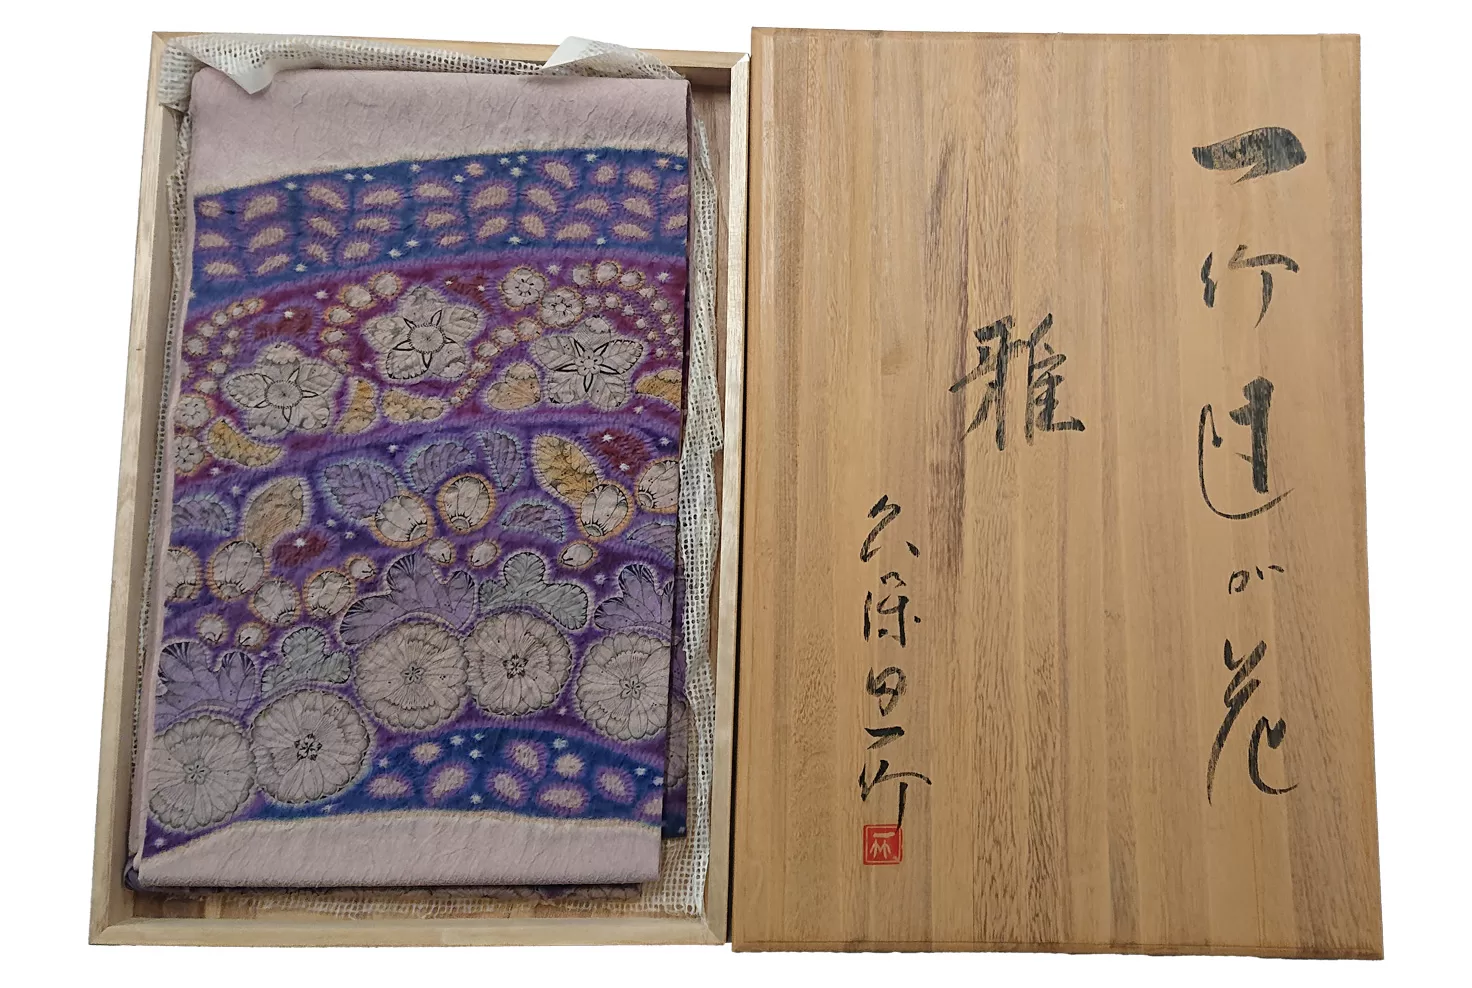 一竹辻が花
雅
久保田一竹
一竹